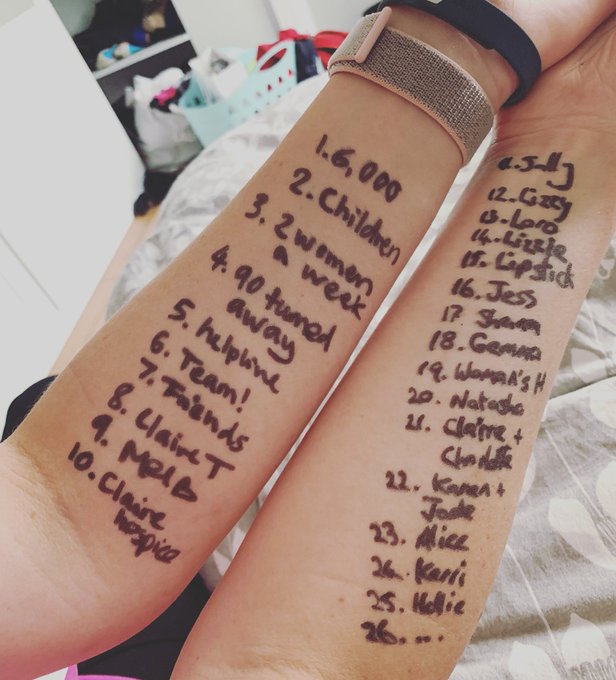 1. 6,000
2. Children
3. 2 women
a week
4. 90 turned
away
5. helpline
6. Team!
7. Friends
8. Claire T
9. Mel B
10. Claire
hospice
11. Jolly
12. Lizzy
13. Loro
14. Lizzie
15. Lipstick
16. Jess
17. Shann
18. Gemma
19. Woman's H
20. Natasha
21. Claire +
Charlotte
22. Karen +
Jade
23. Alice
24. Kerri
25. Hollie
26. ...